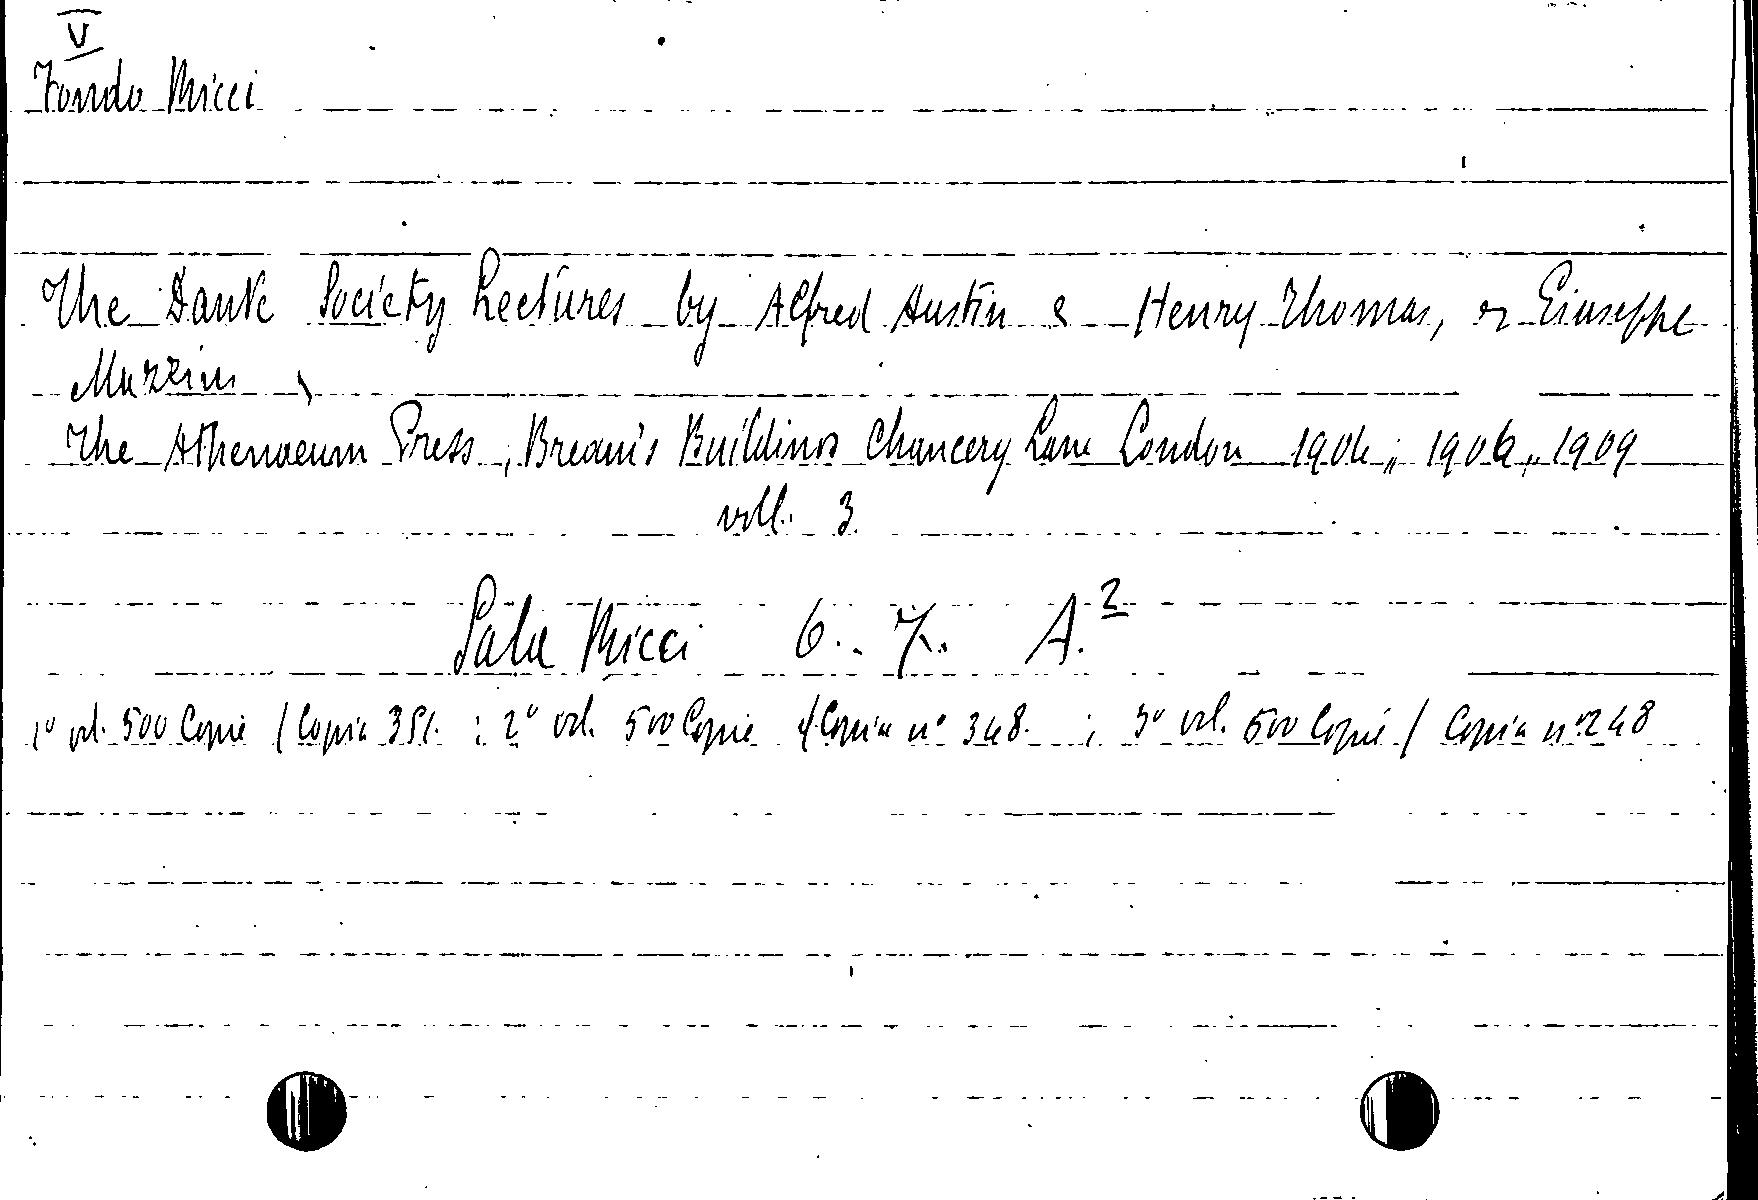 V
Fondo Ricci
The Dante Society Lectures by Alfred Austin e Henry Thomas, or Giuseppe
Mazzini
The Athenaeum Press, Bream's Buildinos Chancery Lane London 1904; 1906, 1909
voll. 3.
Sala Ricci 6. 7. A.2
1° vol. 500 Copie / Copia 351. ; 2° vol. 500 Copie / Copia n° 348. ; 3° vol. 500 Copie / Copia n° 248